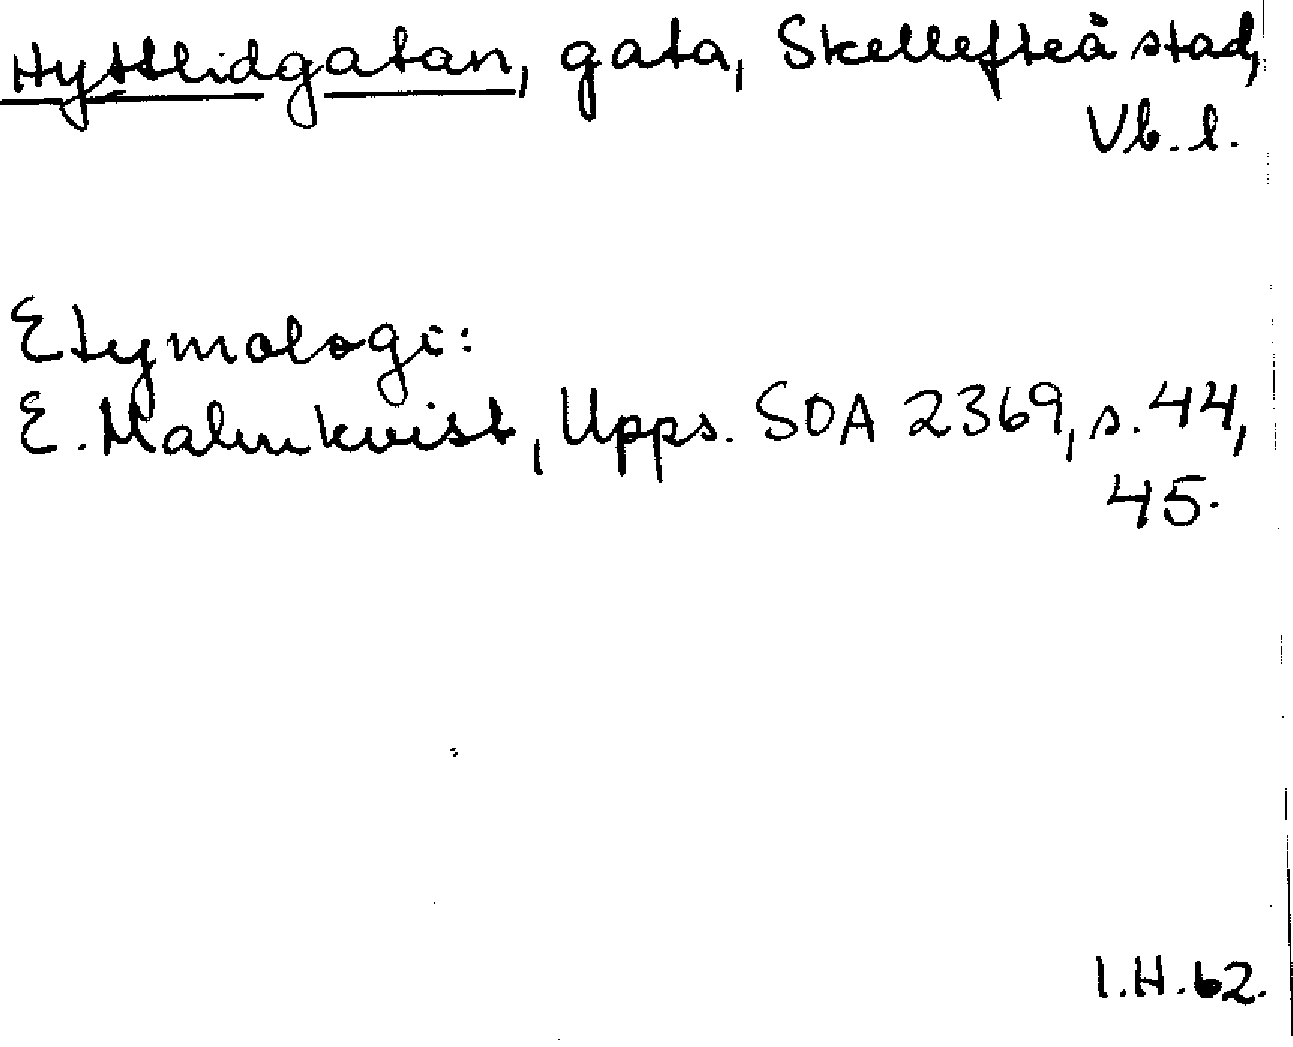 Hyttlidgatan, gata, Skellefteå stad,
Vb. l.
Etymologi:
E. Malmkvist, Upps. SOA 2369, s. 44,
45.
I.H. 62.